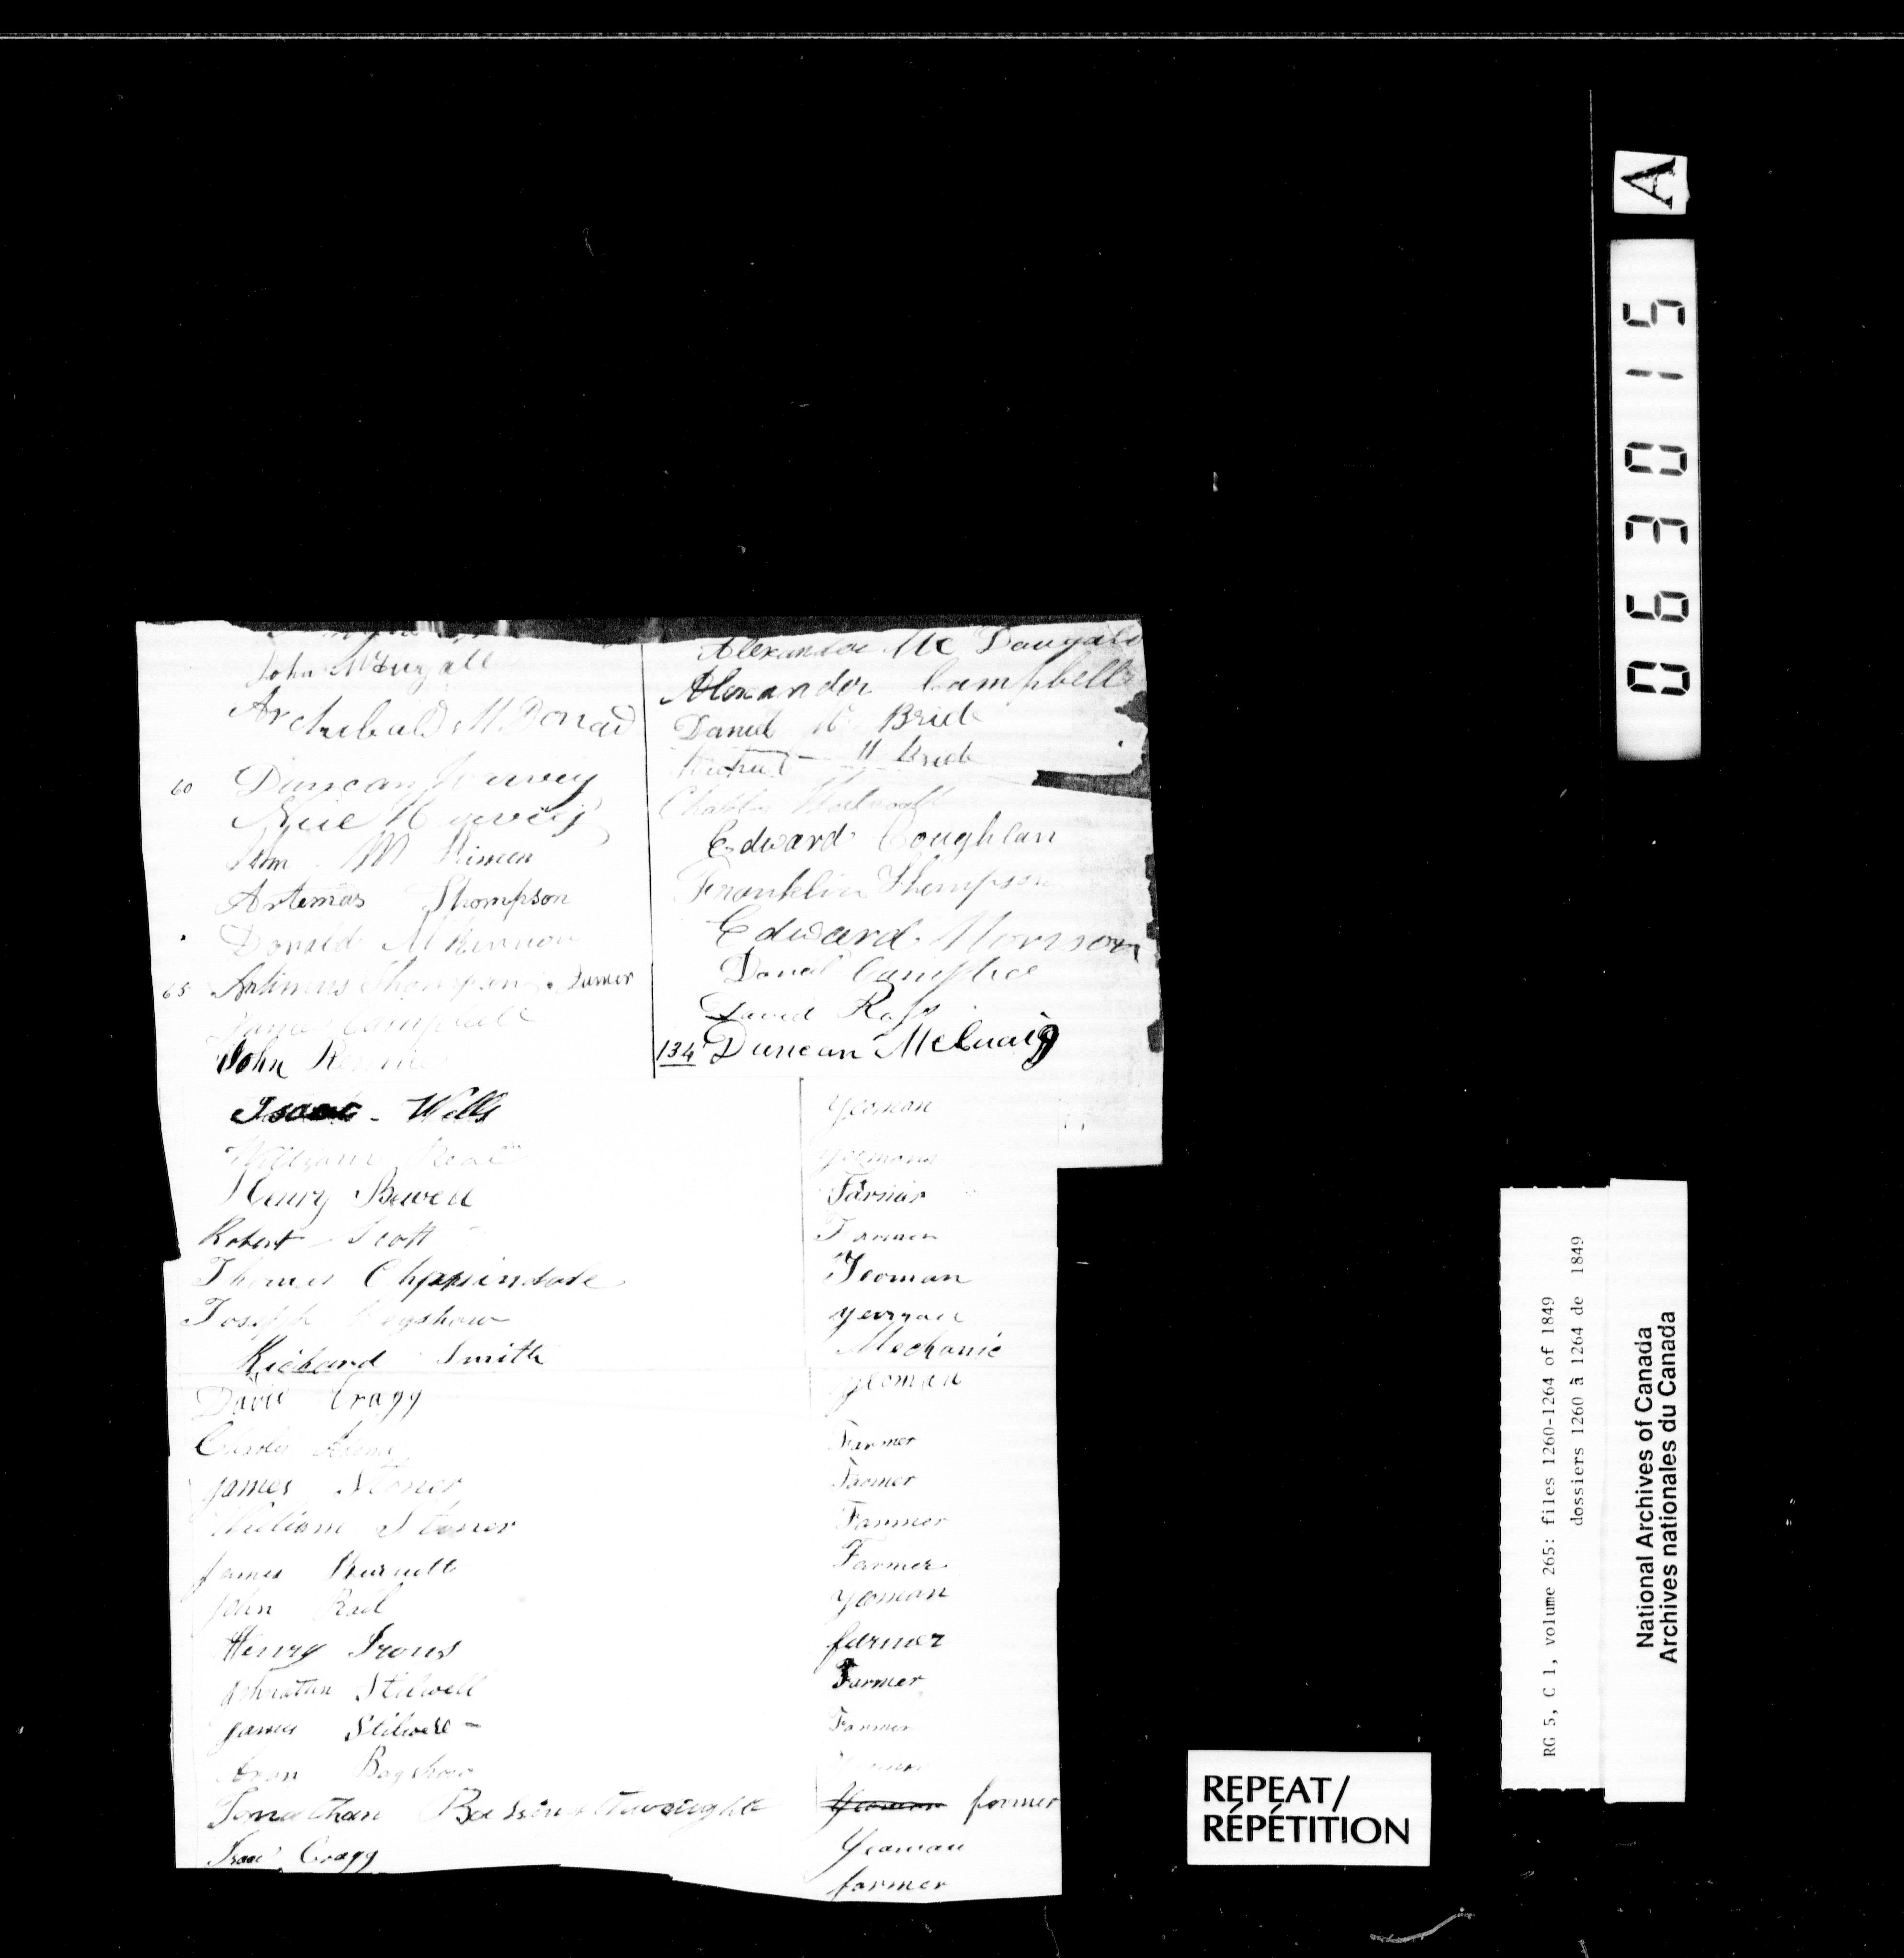 John McDugall
Archibald McDonad
60 Duncan
Artemas Thompson
Donald McKinnon
65 Artimus Thompson Juner
James Campbell
John
Alexander Mc Dougald
Alexander Campbell
Daniel Mc Bride
Mc Bride
Charles
Edward Coughlan
Franklin Thompson
Edward Morison
Daniel Campbel
David Ross
134 Duncan McCuaig
Isaac - Wells yeoman
William yeoman
Henry Bewell Farmar
Robert Scott Farmer
Thomas Chippindale Yeoman
Joseph Bagshaw yeoman
Richard Smith Mechanic
David Cragg yeoman
Charles Farmer
James Stoner Farmer
William Stoner Farmer
James Burnett Farmer
John yeoman
Henry Irons farmer
Johnathn Stilwell Farmer
James Stilwell - Farmer
Bagshaw
Jonathan Yeoman farmer
Isaac Cragg Yeaman
farmer
A
063015
RG 5, C 1, volume 265: files 1260-1264 of 1849
dossiers 1260 à 1264 de 1849
National Archives of Canada
Archives nationales du Canada
REPEAT/
RÉPÉTITION